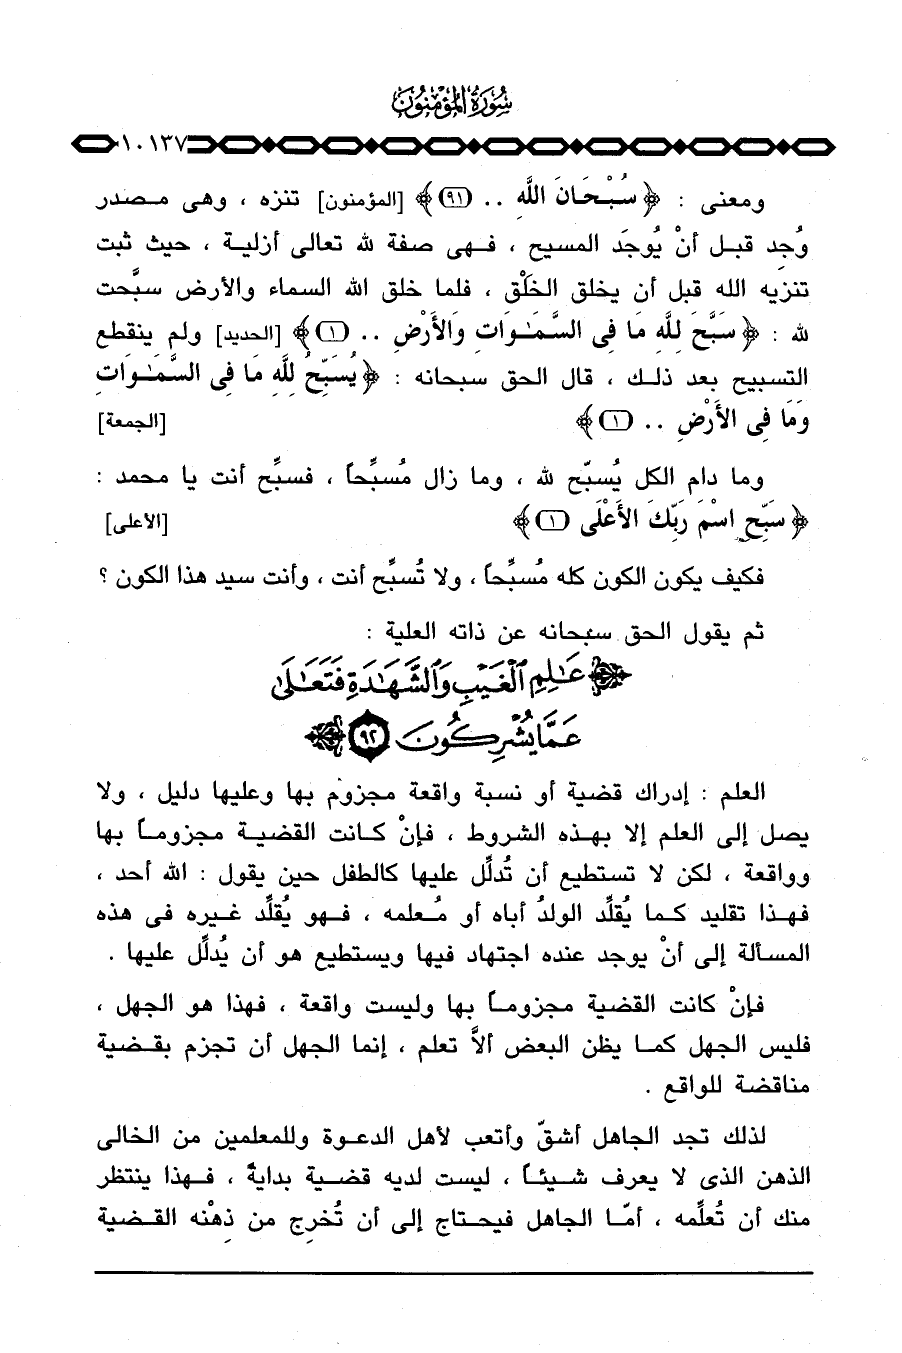 سُورَةُ المُؤْمِنُونَ
١٠١٣٧
ومعنى : ﴿ سُبْحَانَ اللَّهِ .. (٩١) ﴾ [المؤمنون] تنزه ، وهى مصدر
وُجد قبل أنْ يُوجَد المسبِح ، فهى صفة لله تعالى أزلية ، حيث ثبت
تنزيه الله قبل أن يخلق الخَلْق ، فلما خلق الله السماء والأرض سبَّحت
لله : ﴿ سَبَّحَ لِلَّهِ مَا فِى السَّمَٰوَاتِ وَالأَرْضِ .. (١) ﴾ [الحديد] ولم ينقطع
التسبيح بعد ذلك ، قال الحق سبحانه : ﴿ يُسَبِّحُ لِلَّهِ مَا فِى السَّمَٰوَاتِ
وَمَا فِى الأَرْضِ .. (١) ﴾ [الجمعة]
وما دام الكل يُسبّح لله ، وما زال مُسبِّحاً ، فسبِّح أنت يا محمد :
﴿ سَبِّحِ اسْمَ رَبِّكَ الأَعْلَى (١) ﴾ [الأعلى]
فكيف يكون الكون كله مُسبِّحاً ، ولا تُسبِّح أنت ، وأنت سيد هذا الكون ؟
ثم يقول الحق سبحانه عن ذاته العلية :
﴿ عَٰلِمِ الْغَيْبِ وَالشَّهَٰدَةِ فَتَعَٰلَىٰ
عَمَّا يُشْرِكُونَ (٩٢) ﴾
العلم : إدراك قضية أو نسبة واقعة مجزوم بها وعليها دليل ، ولا
يصل إلى العلم إلا بهذه الشروط ، فإنْ كانت القضية مجزوماً بها
وواقعة ، لكن لا تستطيع أن تُدلِّل عليها كالطفل حين يقول : الله أحد ،
فهذا تقليد كما يُقلِّد الولدُ أباه أو مُعلمه ، فهو يُقلِّد غيره فى هذه
المسألة إلى أنْ يوجد عنده اجتهاد فيها ويستطيع هو أن يُدلِّل عليها .
فإنْ كانت القضية مجزوماً بها وليست واقعة ، فهذا هو الجهل ،
فليس الجهل كما يظن البعض ألاَّ تعلم ، إنما الجهل أن تجزم بقضية
مناقضة للواقع .
لذلك تجد الجاهل أشقّ وأتعب لأهل الدعوة وللمعلمين من الخالى
الذهن الذى لا يعرف شيئاً ، ليست لديه قضية بدايةً ، فهذا ينتظر
منك أن تُعلِّمه ، أمّا الجاهل فيحتاج إلى أن تُخرِج من ذِهْنه القضية